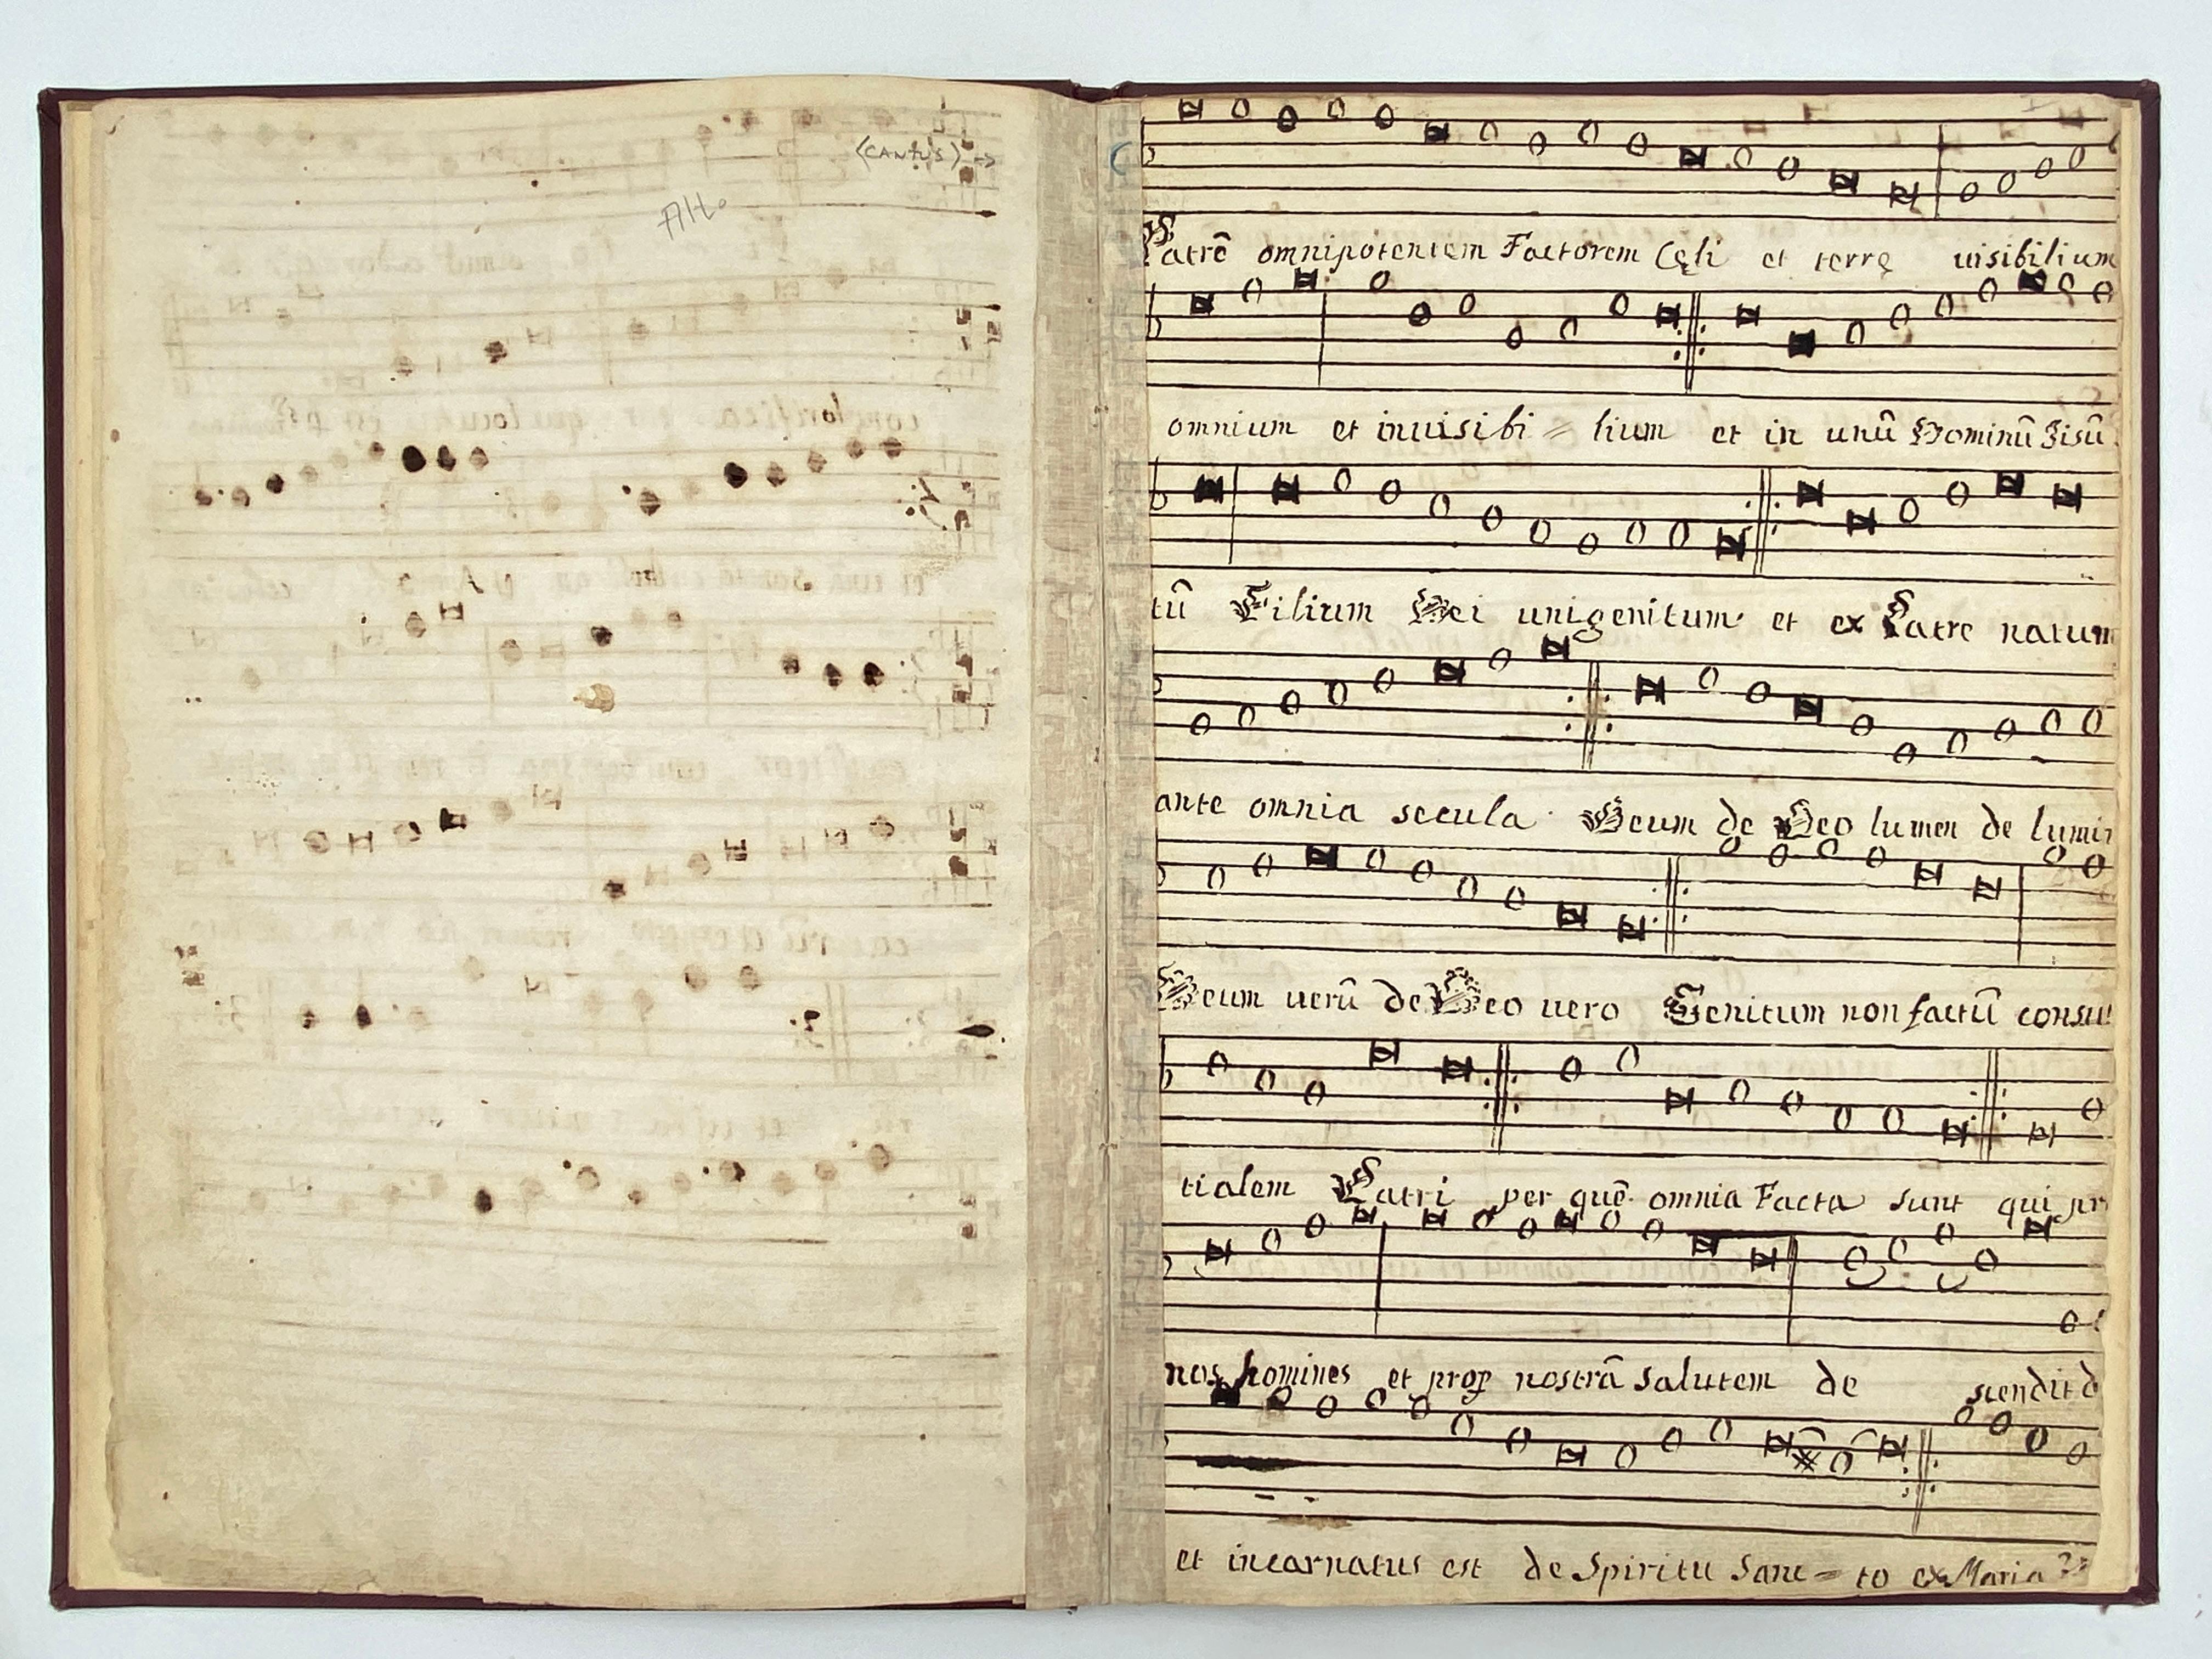 (CANTUS) →
Alto
Patrē omnipotentem Factorem Cęli et terrę uisibilium
omnium et inuisibi = lium et in unū Dominū Jisū
tū Filium Dei unigenitum et ex Patre natum
ante omnia secula Deum de Deo lumen de lumin
Deum uerū de Deo uero Genitum non factū consu
tialem Patri per quē omnia Facta sunt qui pr
nos homines et prop nostrā salutem de scendit d
et incarnatus est de Spiritu Sanc = to ex Maria